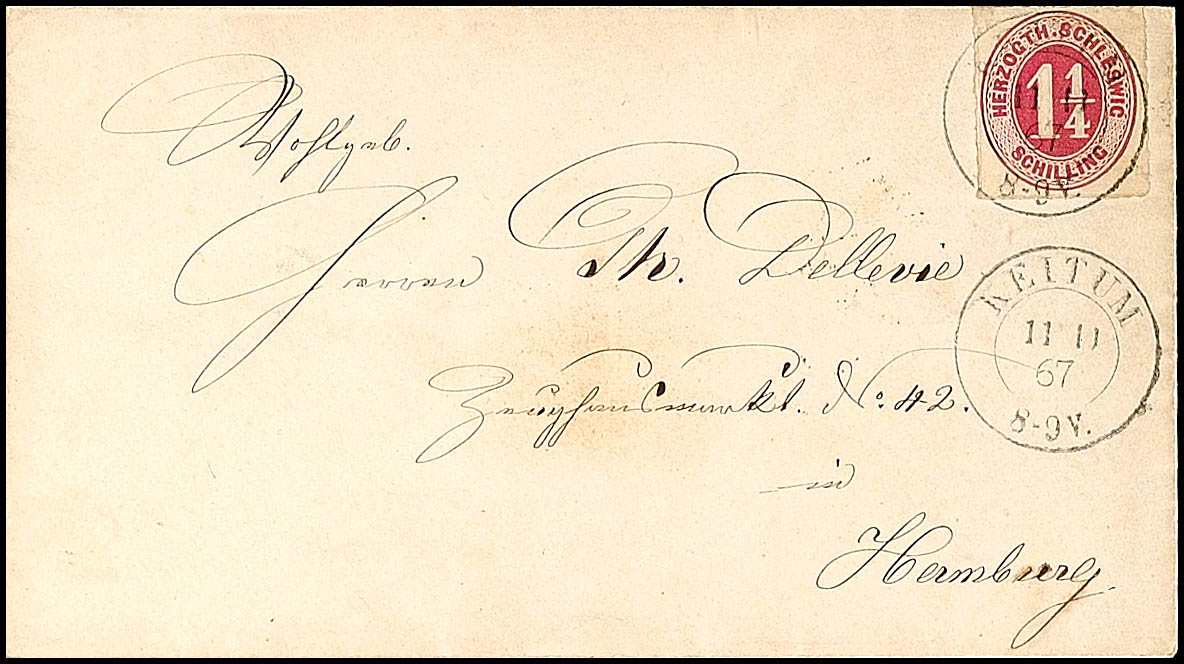 HERZOGTH. SCHLESWIG
1 1/4
SCHILLING
11 11
67
8-9V.
Wohlgeb.
Herren Th. Dellevie
KEITUM
11 11
67
8-9V.
Zeughausmarkt. No. 42.
in
Hamburg.